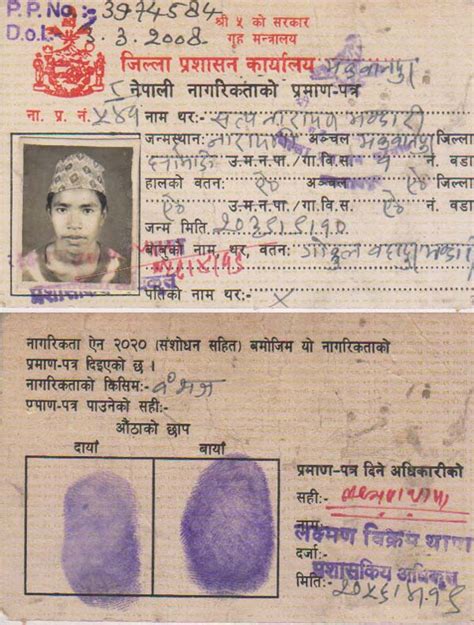 P.P.No :- 3974584
D.o.I. 3.3.2008
श्री ५ को सरकार
गृह मन्त्रालय
जिल्ला प्रशासन कार्यालय मकवानपुर
नेपाली नागरिकताको प्रमाण-पत्र
ना. प्र. नं. नाम थर:- सत्य नारायण भण्डारी
जन्मस्थान:- नारायणी अञ्चल मकवानपुर जिल्ला
उ.म.न.पा./गा.वि.स. नं. वडा
हालको वतन:- ऐ ऐ अञ्चल जिल्ला
उ.म.न.पा./गा.वि.स. नं. वडा
जन्म मिति
बाबुको नाम थर, वतन: गोकुल बहादुर भण्डारी
प्रशासकिय अधिकृत
पतिको नाम थर:- X
नागरिकता ऐन २०२० (संशोधन सहित) बमोजिम यो नागरिकताको
प्रमाण-पत्र दिइएको छ ।
नागरिकताको किसिम:- वंशज
प्रमाण-पत्र पाउनेको सही:-
औंठाको छाप
दायाँ बायाँ
प्रमाण-पत्र दिने अधिकारीको
सही:-
नाम:
लक्ष्मण विक्रम थापा
दर्जा:-
प्रशासकिय अधिकृत
मिति:-